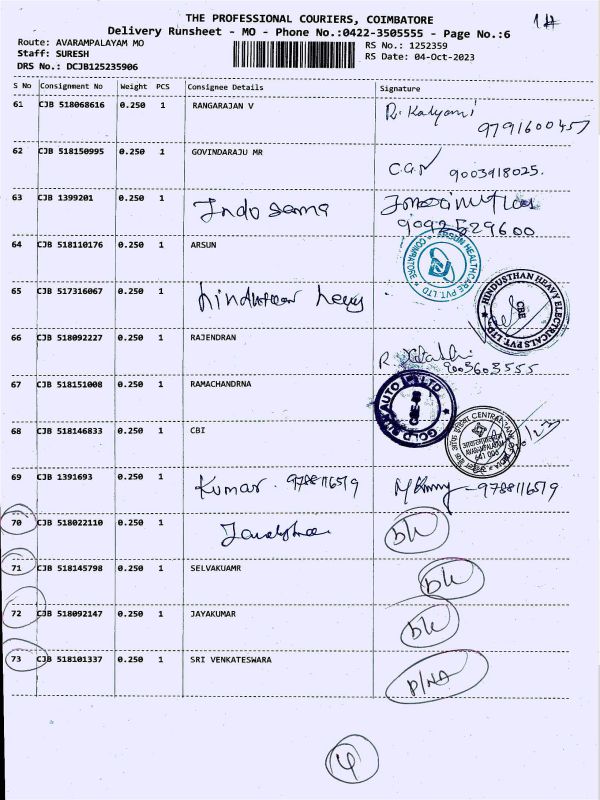 THE PROFESSIONAL COURIERS, COIMBATORE
Delivery Runsheet - MO - Phone No.:0422-3505555 - Page No.:6
Route: AVARAMPALAYAM MO
RS No.: 1252359
Staff: SURESH
RS Date: 04-Oct-2023
DRS No.: DCJB125235906
S No Consignment No Weight PCS Consignee Details Signature
61 CJB 518068616 0.250 1 RANGARAJAN V R. Kalyani
9791600457
62 CJB 518150995 0.250 1 GOVINDARAJU MR
9003918025.
63 CJB 1399201 0.250 1 Indo
9092529600
64 CJB 518110176 0.250 1 ARSUN ARSUN HEALTHCARE PVT. LTD COIMBATORE
65 CJB 517316067 0.250 1 hindustan heavy HINDUSTHAN HEAVY ELECTRICALS PVT. LTD. CBE
66 CJB 518092227 0.250 1 RAJENDRAN
9003603555
67 CJB 518151008 0.250 1 RAMACHANDRNA AUTO LTD GOLD
68 CJB 518146833 0.250 1 CBI CENTRAL BANK OF INDIA AVARAMPALAYAM
69 CJB 1391693 0.250 1 Kumar. 9788116519 9788116519
70 CJB 518022110 0.250 1 DL
71 CJB 518145798 0.250 1 SELVAKUAMR DL
72 CJB 518092147 0.250 1 JAYAKUMAR DL
73 CJB 518101337 0.250 1 SRI VENKATESWARA P/NA
4